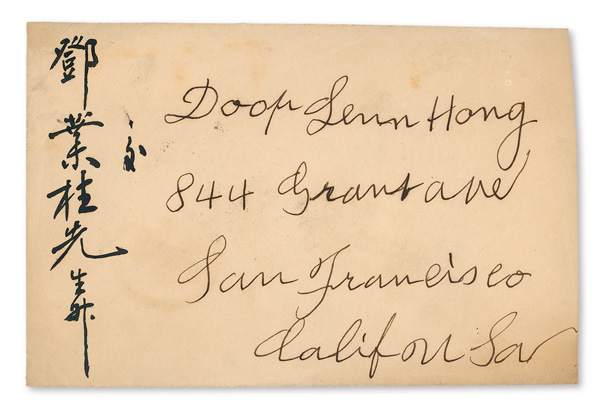 鄧業桂先生升
Doop Lenn Hong
844 Grant ave
San Francisco
Califon Sa